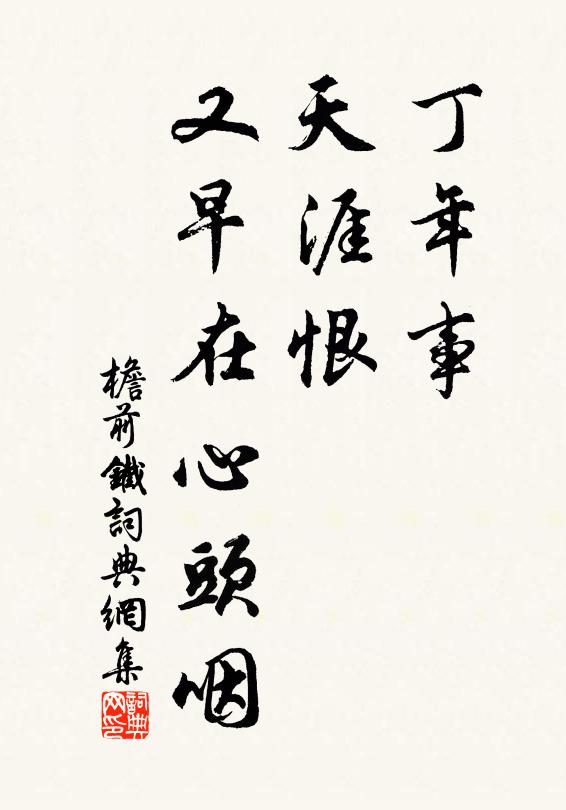 丁年事
天涯恨
又早在心頭咽
檐前鐵詞典網集
詞典網印